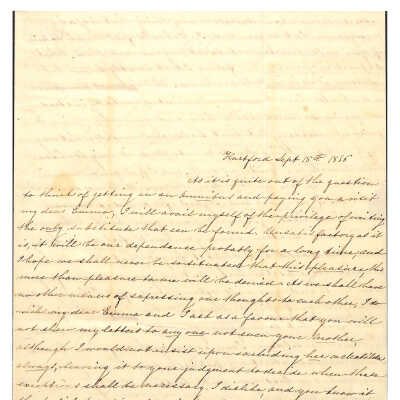 Hartford Sept 15th 1855
As it is quite out of the question
to think of getting in an Omnibus and paying you a visit
my dear Emma, I will avail myself of the privilege of writing
the only substitute that can be found. Unsatisfactory as it
is, it will be our dependence probably for a long time, and
I hope we shall never be so situated that this pleasure, this
more than pleasure to me will be denied. As we shall have
no other means of expressing our thoughts to each other, I
will my dear Emma and I ask as a favour that you will
not show my letters to any one not even your Mother,
although I would not insist upon excluding her
always, leaving it to your judgment to decide when
shall be necessary. I dislike, and you know it